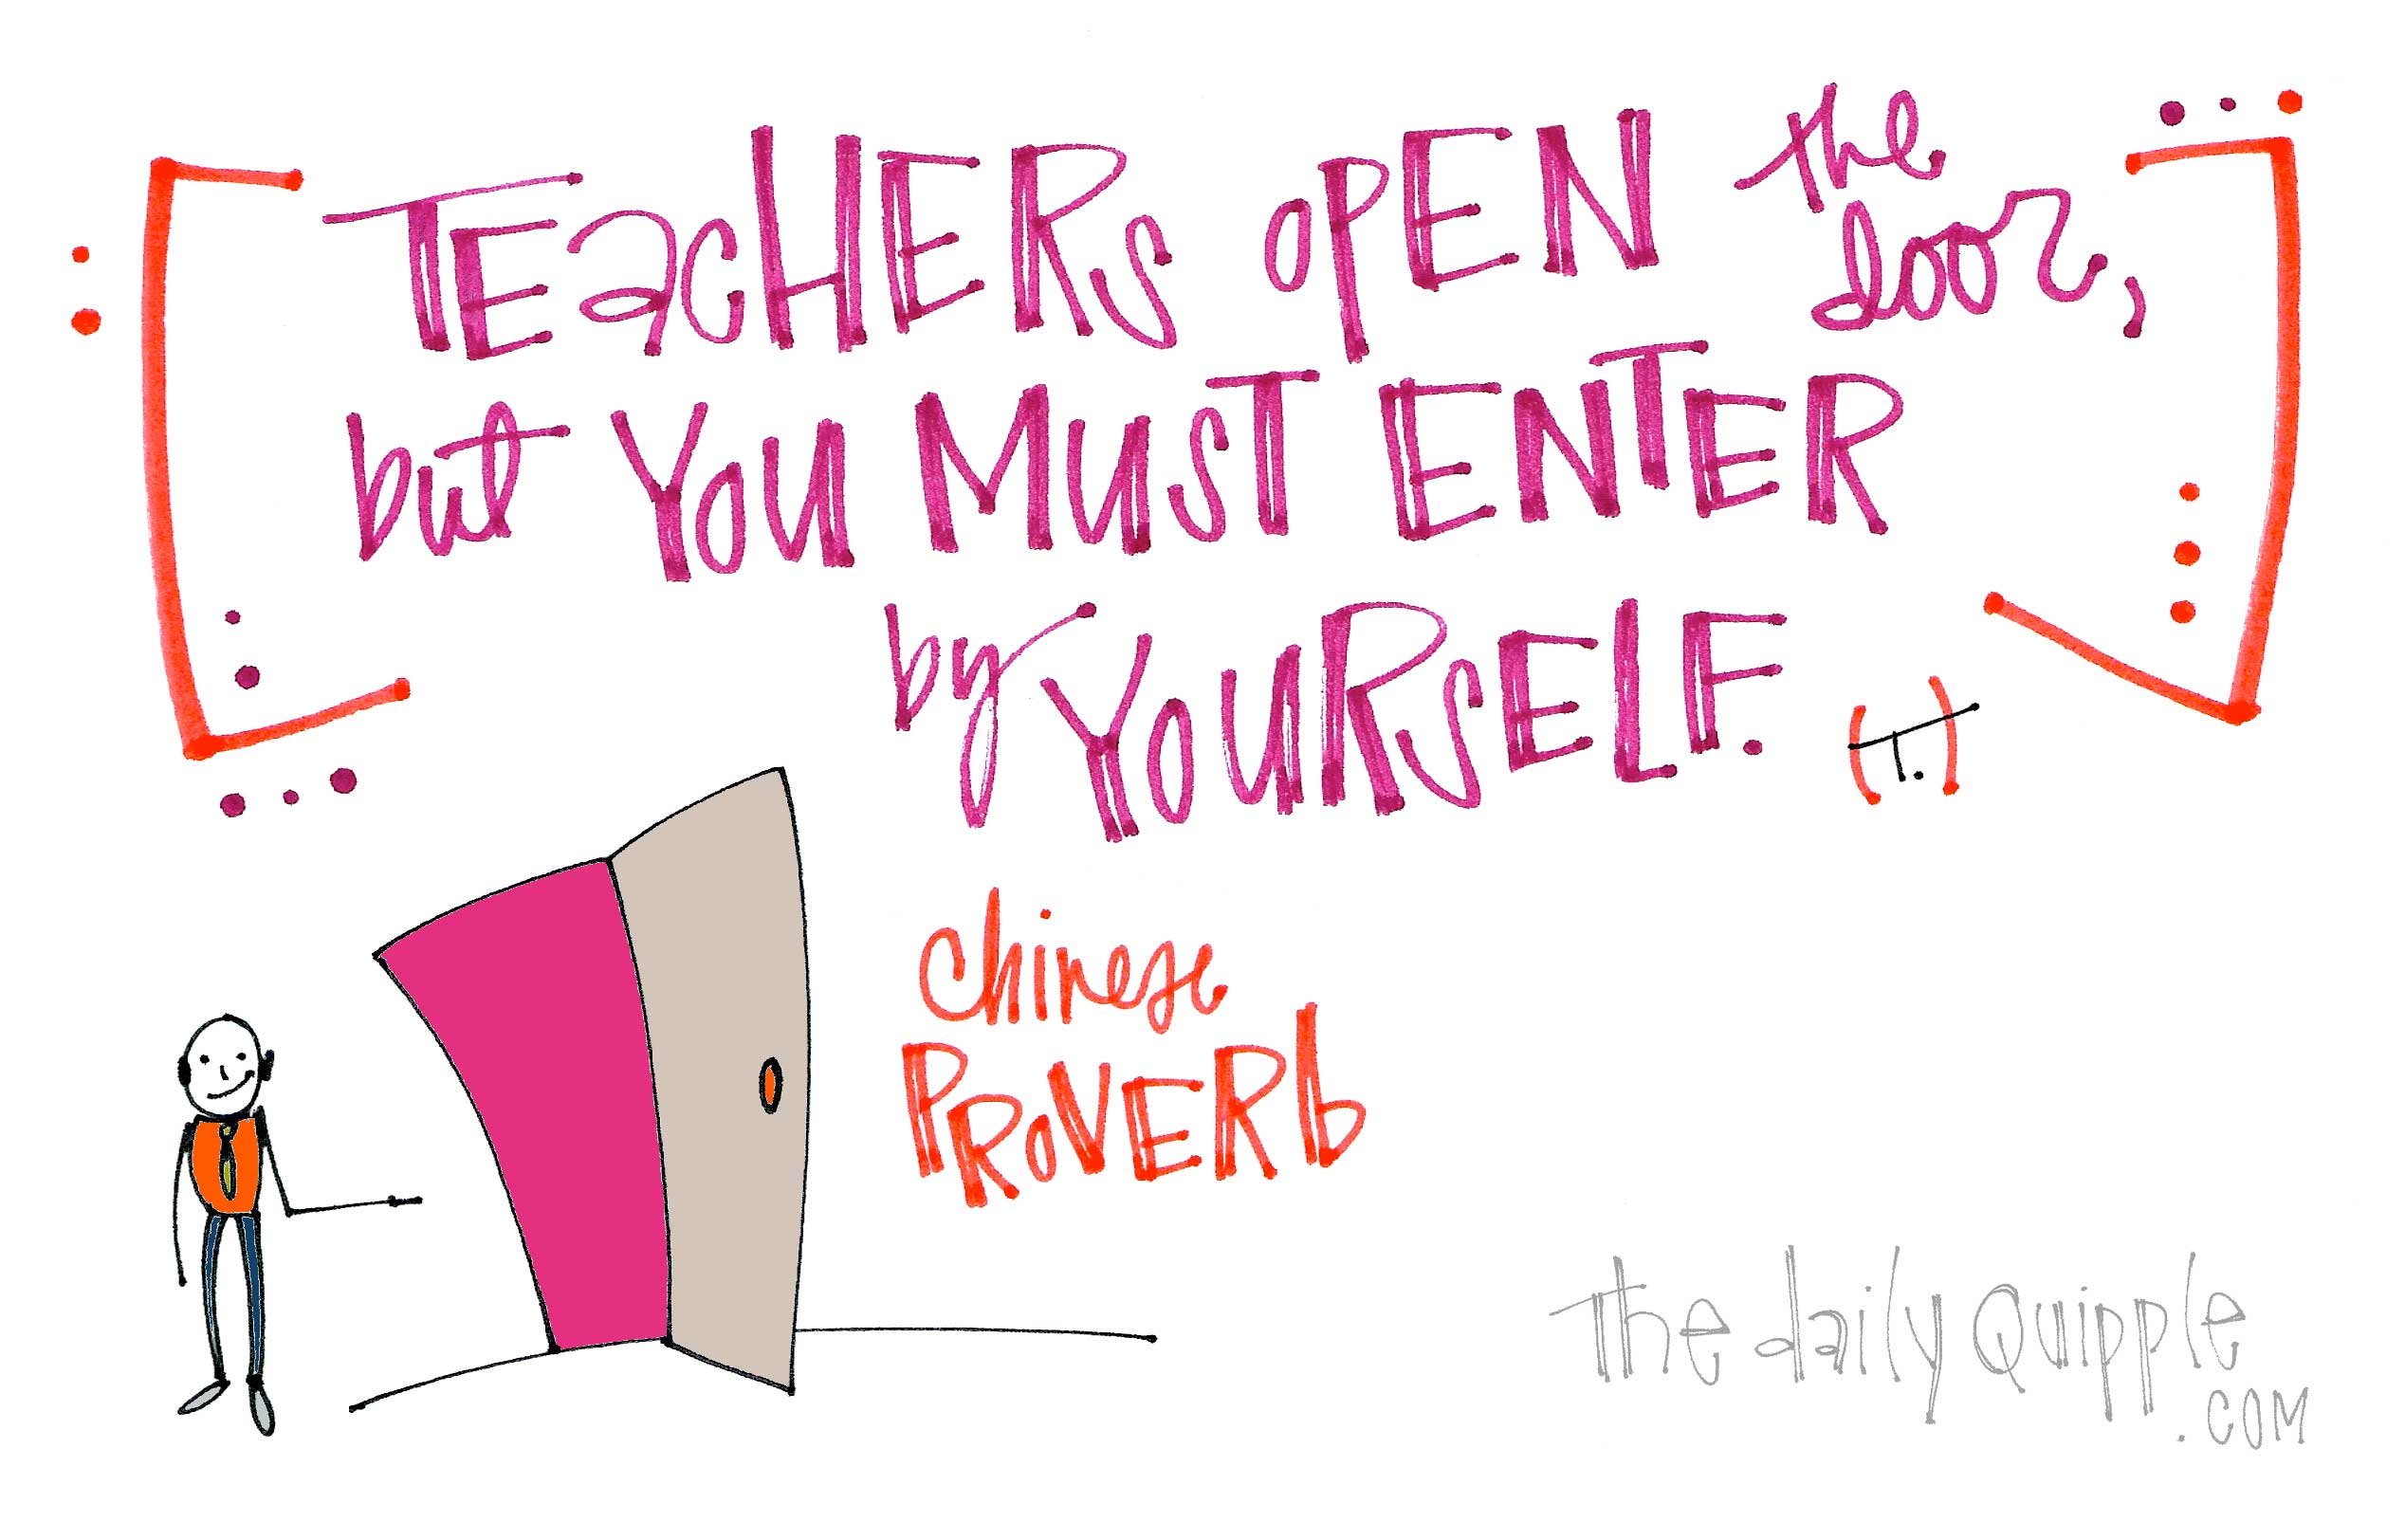 TEaCHERS OPEN the door,
but YOU MUST ENTER
by YOURSELF.
(T.)
chinese
PROVERb
The daily Quipple
.COM